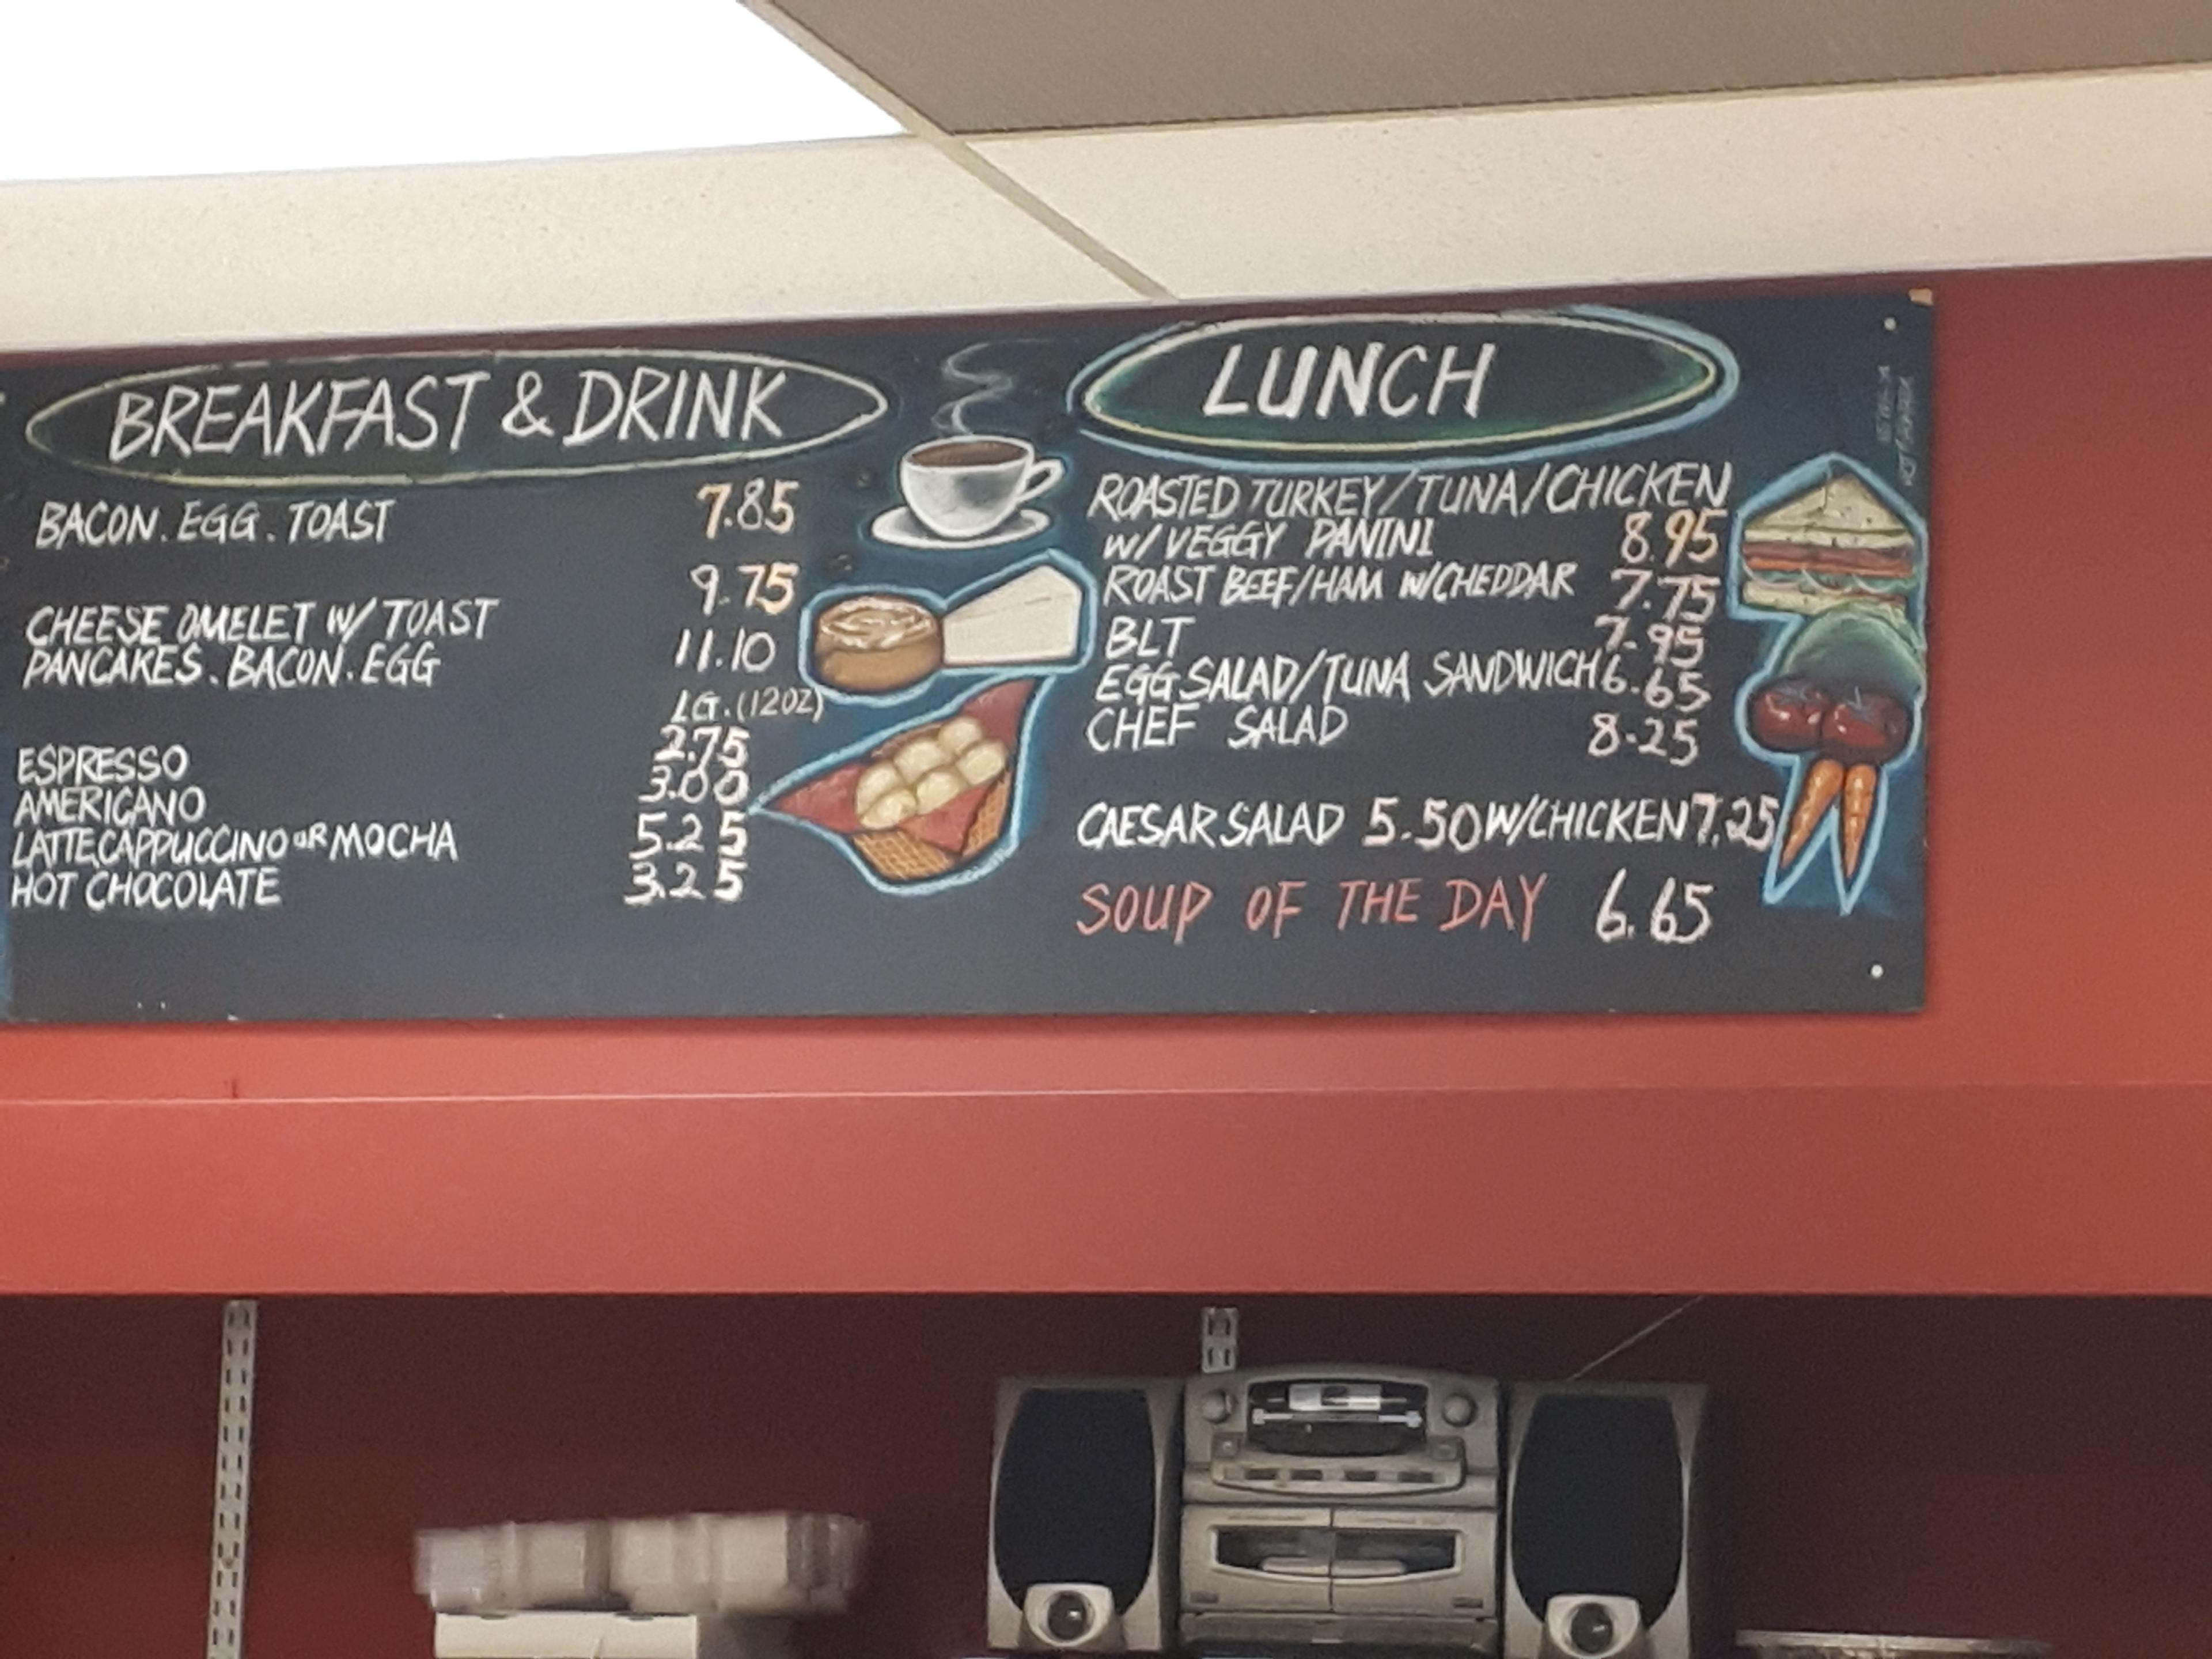 BREAKFAST & DRINK
BACON. EGG. TOAST 7.85
CHEESE OMELET W/ TOAST 9.75
PANCAKES. BACON. EGG 11.10
LG. (12OZ)
ESPRESSO 2.75
AMERICANO 3.00
LATTE,CAPPUCCINO OR MOCHA 5.25
HOT CHOCOLATE 3.25
LUNCH
ROASTED TURKEY/TUNA/CHICKEN
W/ VEGGY PANINI 8.95
ROAST BEEF/HAM W/CHEDDAR 7.75
BLT 7.95
EGG SALAD/TUNA SANDWICH 6.65
CHEF SALAD 8.25
CAESAR SALAD 5.50 W/CHICKEN 7.25
SOUP OF THE DAY 6.65